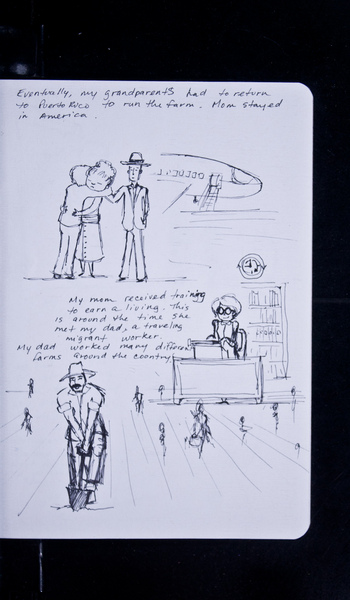 Eventually, my grandparents had to return
to Puerto Rico to run the farm. Mom stayed
in America.
My mom received training
to earn a living. This
is around the time she
met my dad, a traveling
migrant worker.
My dad worked many different
farms around the country